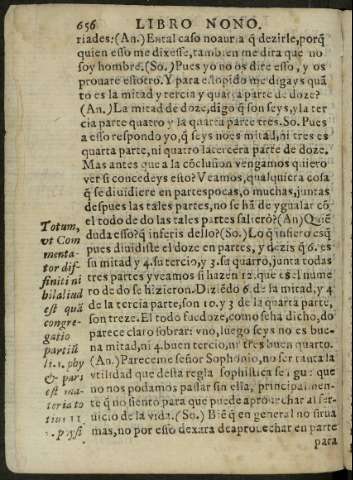 656 LIBRO NONO.
riades: (An.) En tal caso no aura q̃ dezirle, porq̃
quien esso me dixesse, tambien me dira que no
soy hombre. (So.) Pues yo no os dire esso, y os
prouare essotro. Y para esto pido me digays quã
to es la mitad y tercia y quarta parte de doze?
(An.) La mitad de doze, digo q̃ son seys, y la ter
cia parte quatro y la quarta parte tres. So. Pues
a esso respondo yo, q̃ seys no es mitad, ni tres es
quarta parte, ni quatro la tercera parte de doze.
Mas antes que a la cõclusion vengamos quiero
ver si concedeys esto? Veamos, qualquiera cosa
q̃ se diuidiere en partes pocas, o muchas, juntas
despues las tales partes, no se hã de ygualar cõ
el todo de do las tales partes saliero? (An) Quiẽ
duda esso? q̃ inferis dello? (So.) Lo q̃ infiero es q̃
pues diuidiste el doze en partes, y dezis q̃ 6. es
su mitad y 4. su tercio, y 3. su quarro, junta todas
tres partes y veamos si hazen 12. que es el nume
ro de do se hizieron. Diziẽdo 6. de la mitad, y 4
de la tercia parte, son 10. y 3 de la quarta parte,
son treze. El todo fue doze, como se ha dicho, do
parece claro sobrar vno, luego seys no es bue-
na mitad, ni 4. buen tercio, ni tres buen quarto.
(An.) Pareceme señor Sophonio, no ser tanta la
vtilidad que desta regla sophistica se sigue que
no nos podamos passar sin ella, principalmen-
te q̃ no siento para que puede aprouechar al ser-
uicio de la vida. (So.) Biẽ q̃ en general no sirua
mas, no por esso dexara de aprouechar en parte
para
Totum,
vt Com
menta-
tor dif-
finiti ni
hil aliud
est quã
congre-
gatio
partiũ
li. 1. phy
& pars
est ma-
teria to
tius 11
2. physi